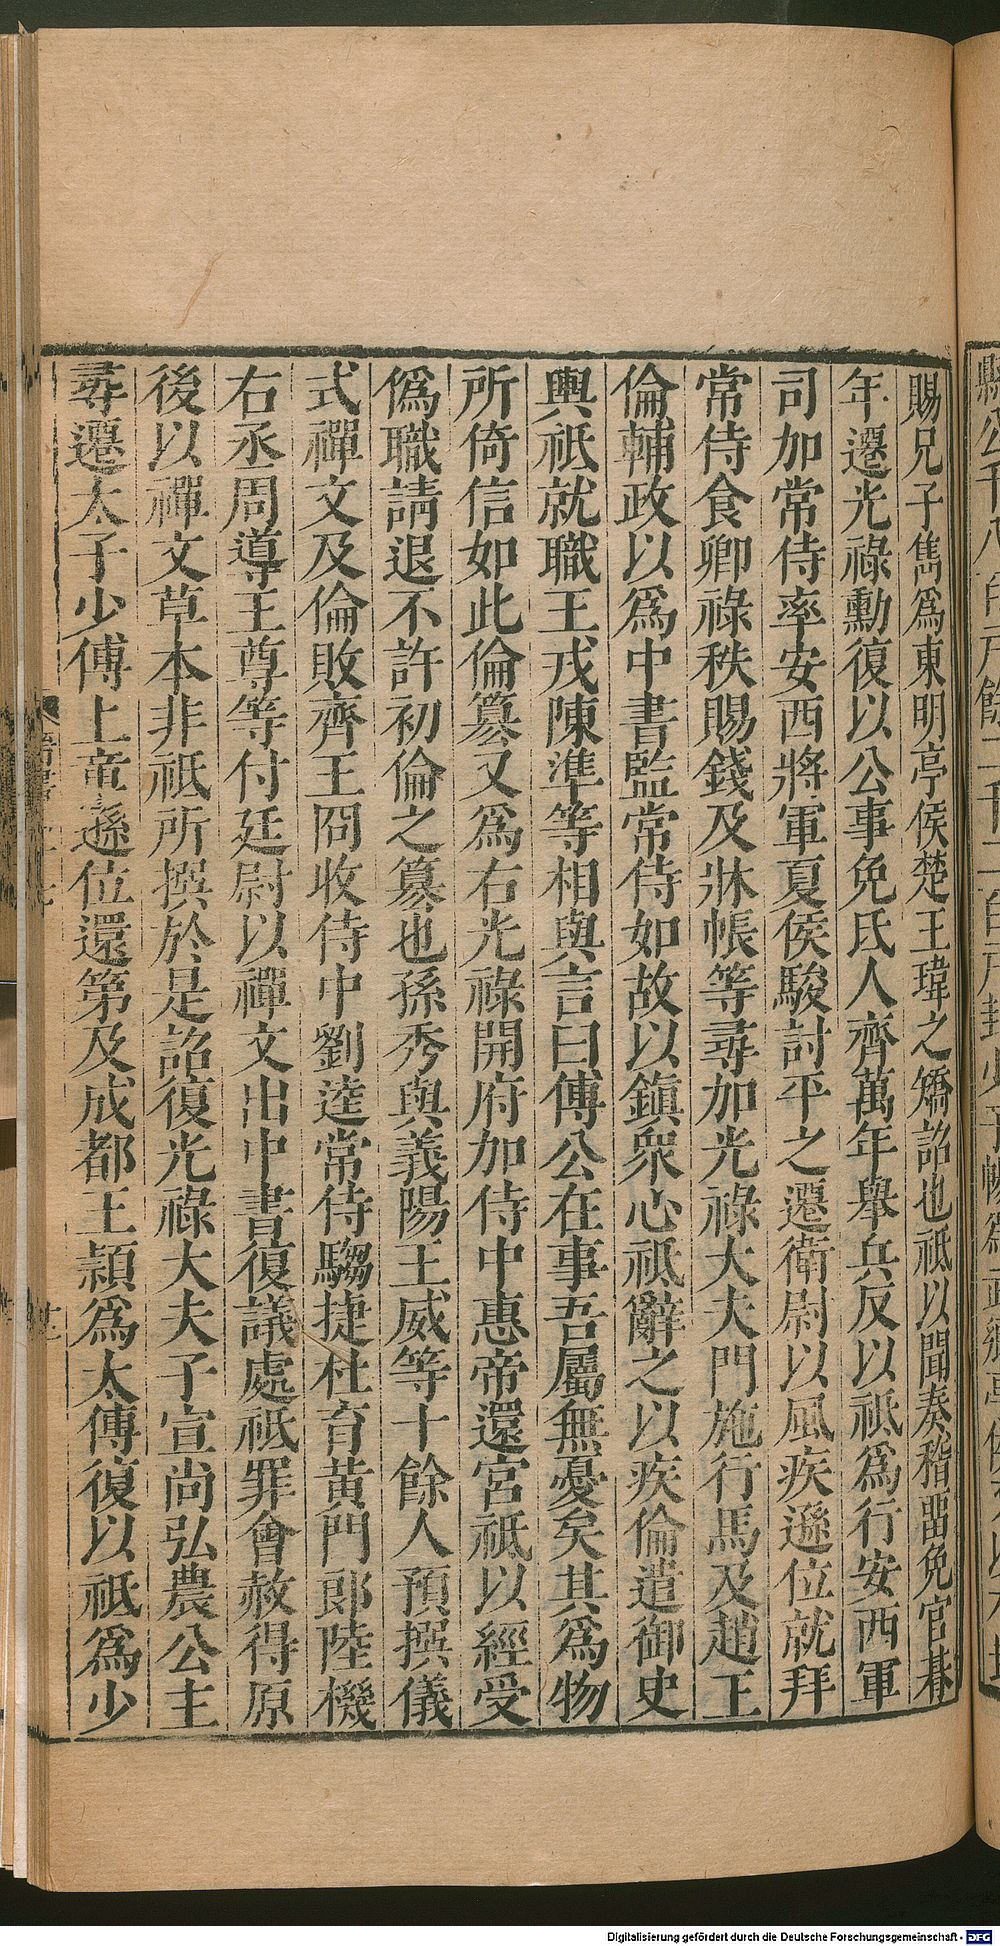 賜兄子雋爲東明亭侯楚王瑋之矯詔也祗以聞奏稽留免官朞
年遷光祿勳復以公事免氐人齊萬年舉兵反以祗爲行安西軍
司加常侍率安西將軍夏侯駿討平之遷衛尉以風疾遜位就拜
常侍食卿祿秩賜錢及牀帳等尋加光祿大夫門施行馬及趙王
倫輔政以爲中書監常侍如故以鎭衆心祗辭之以疾倫遣御史
輿祗就職王戎陳準等相與言曰傅公在事吾屬無憂矣其爲物
所倚信如此倫篡又爲右光祿開府加侍中惠帝還宮祗以經受
僞職請退不許初倫之篡也孫秀與義陽王威等十餘人預撰儀
式禪文及倫敗齊王冏收侍中劉逵常侍騶捷杜育黃門郎陸機
右丞周導王尊等付廷尉以禪文出中書復議處祗罪會赦得原
後以禪文草本非祗所撰於是詔復光祿大夫子宣尚弘農公主
尋遷太子少傅上章遜位還第及成都王穎爲太傅復以祗爲少
Digitalisierung gefördert durch die Deutsche Forschungsgemeinschaft - DFG